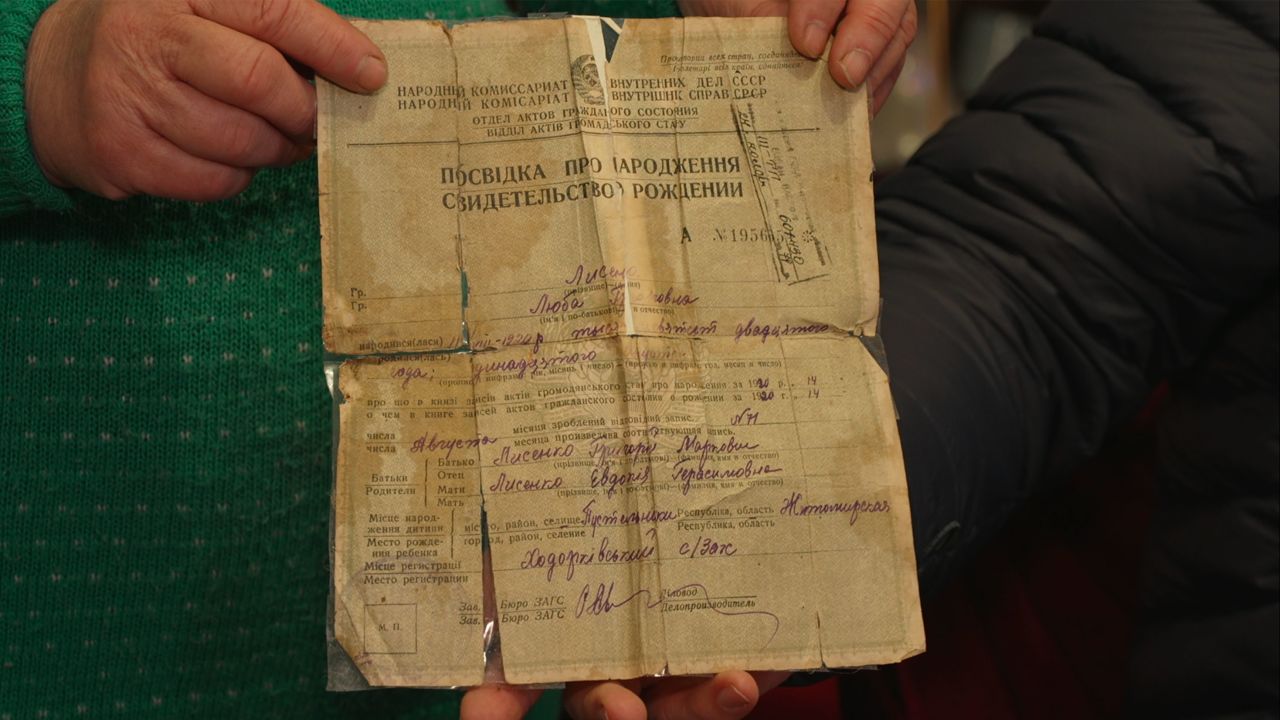 Пролетарии всех стран, соединяйтесь
Пролетарі всіх країн, єднайтеся!
НАРОДНЫЙ КОМИССАРИАТ ВНУТРЕННИХ ДЕЛ СССР
НАРОДНІЙ КОМІСАРІАТ ВНУТРІШНІХ СПРАВ СРСР
ОТДЕЛ АКТОВ ГРАЖДАНСКОГО СОСТОЯНИЯ
ВІДДІЛ АКТІВ ГРОМАДСЬКОГО СТАНУ
ПОСВІДКА ПРО НАРОДЖЕННЯ
СВИДЕТЕЛЬСТВО РОЖДЕНИИ
А №1956
Гр. Лисенко
Гр. (прізвище)
Люба
(ім'я і по-батькові) и отчество)
народився(лася) 1920р двадцятого
родился(лась)
года;
про що в книзі записів актів громодянського стану про народження за 1920 р. 14
о чем в книге записей актов гражданского состояния о рождении за 1920 г. 14
числа Августа місяця зроблений відповідний запис. N71
числа месяца произведена соответствующая запись.
Батько Лисенко Григорій Маркович
Батьки Отец (прізвище, ім'я і по-батькові)—(фамилия, имя и отчество)
Родители Мати Лисенко Евдокія Герасимовна
Мать (прізвище, ім'я і по-батькові)—(фамилия, имя и отчество)
Місце народження дитини місто, район, селище Пустельники Республіка, область Житомирская
Место рождения ребенка город, район, селение Республика, область
Місце регистрації Ходорківський с/Заг
Место регистрации
Зав. Бюро ЗАГС Діловод
Зав. Бюро ЗАГС Делопроизводитель
М. П.